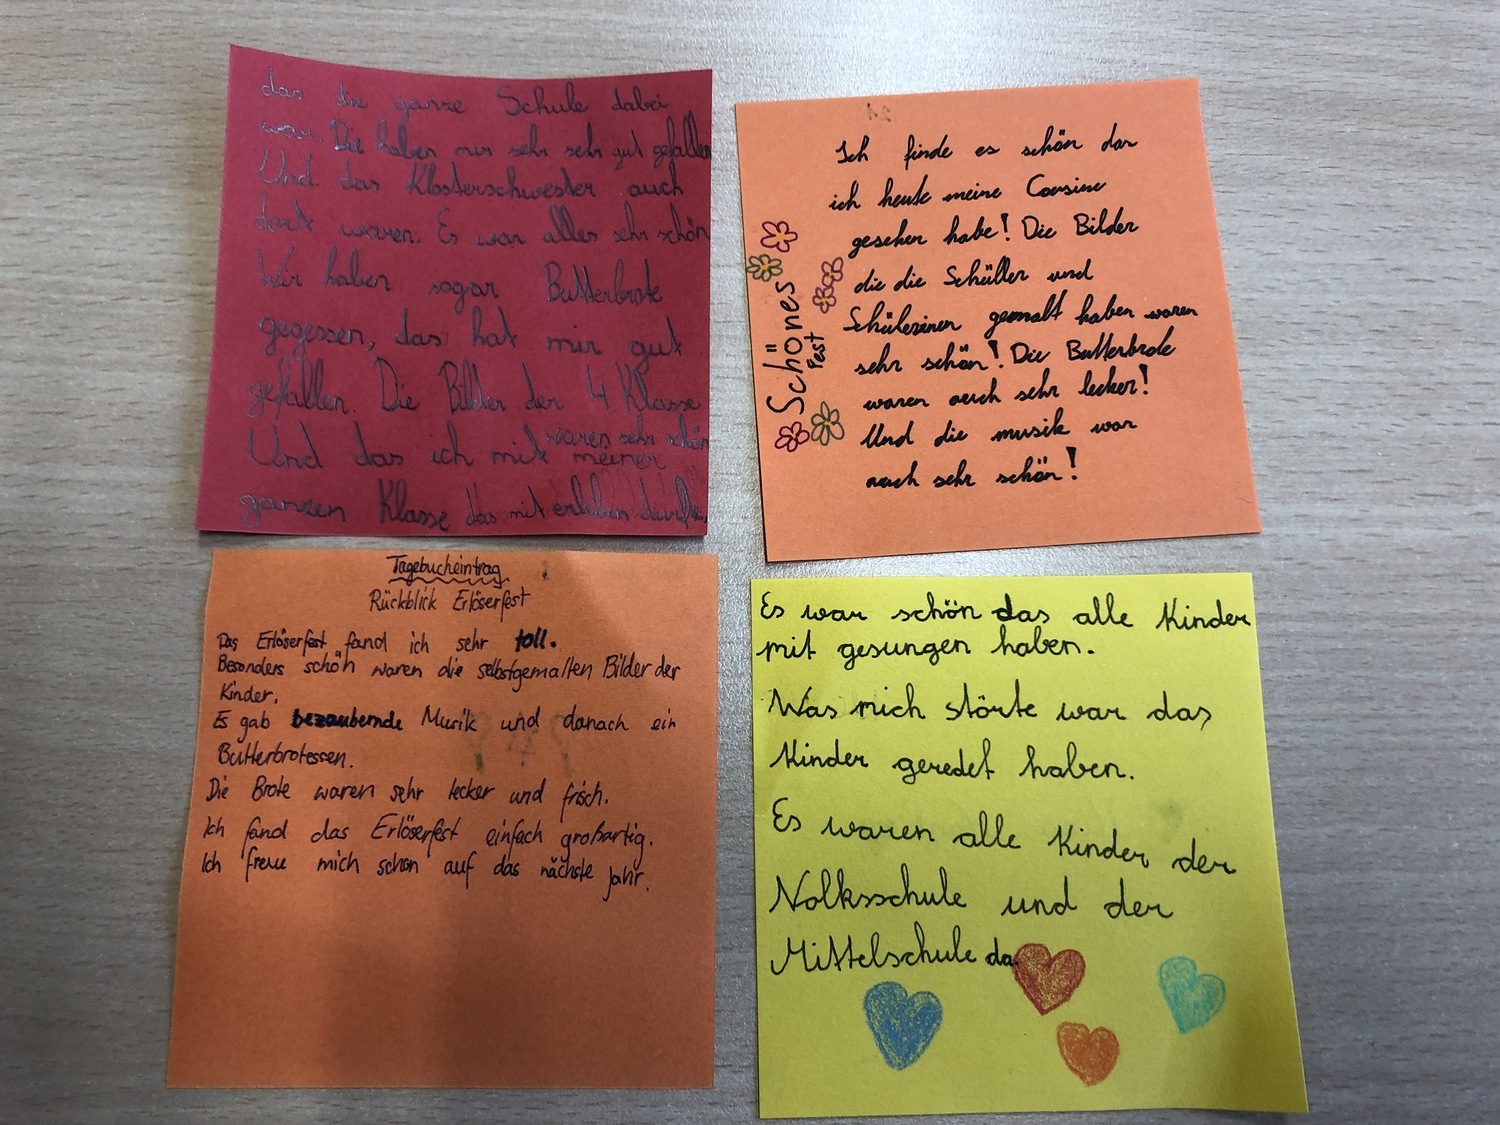 das die ganze Schule dabei
war. Die haben mir sehr sehr gut gefallen
Und das Klosterschwester auch
dort waren. Es war alles sehr schön
Wir haben sogar Butterbrote
gegessen, das hat mir gut
gefallen. Die Bilder der 4 Klasse
waren sehr schön
Und das ich mit meiner
ganzen Klasse das mit erleben
Ich finde es schön das
ich heute meine Cousine
gesehen habe! Die Bilder
die die Schüller und
Schülerinen gemalt haben waren
sehr schön! Die Butterbrote
waren auch sehr lecker!
Und die musik war
auch sehr schön!
Schönes
Fest
Tagebucheintrag
Rückblick Erlöserfest
Das Erlöserfest fand ich sehr toll.
Besonders schön waren die selbstgemalten Bilder der
Kinder.
Es gab bezaubernde Musik und danach ein
Butterbrotessen.
Die Brote waren sehr lecker und frisch.
Ich fand das Erlöserfest einfach großartig.
Ich freue mich schon auf das nächste Jahr.
Es war schön das alle Kinder
mit gesungen haben.
Was mich störte war das
Kinder geredet haben.
Es waren alle Kinder der
Volksschule und der
Mittelschule da.